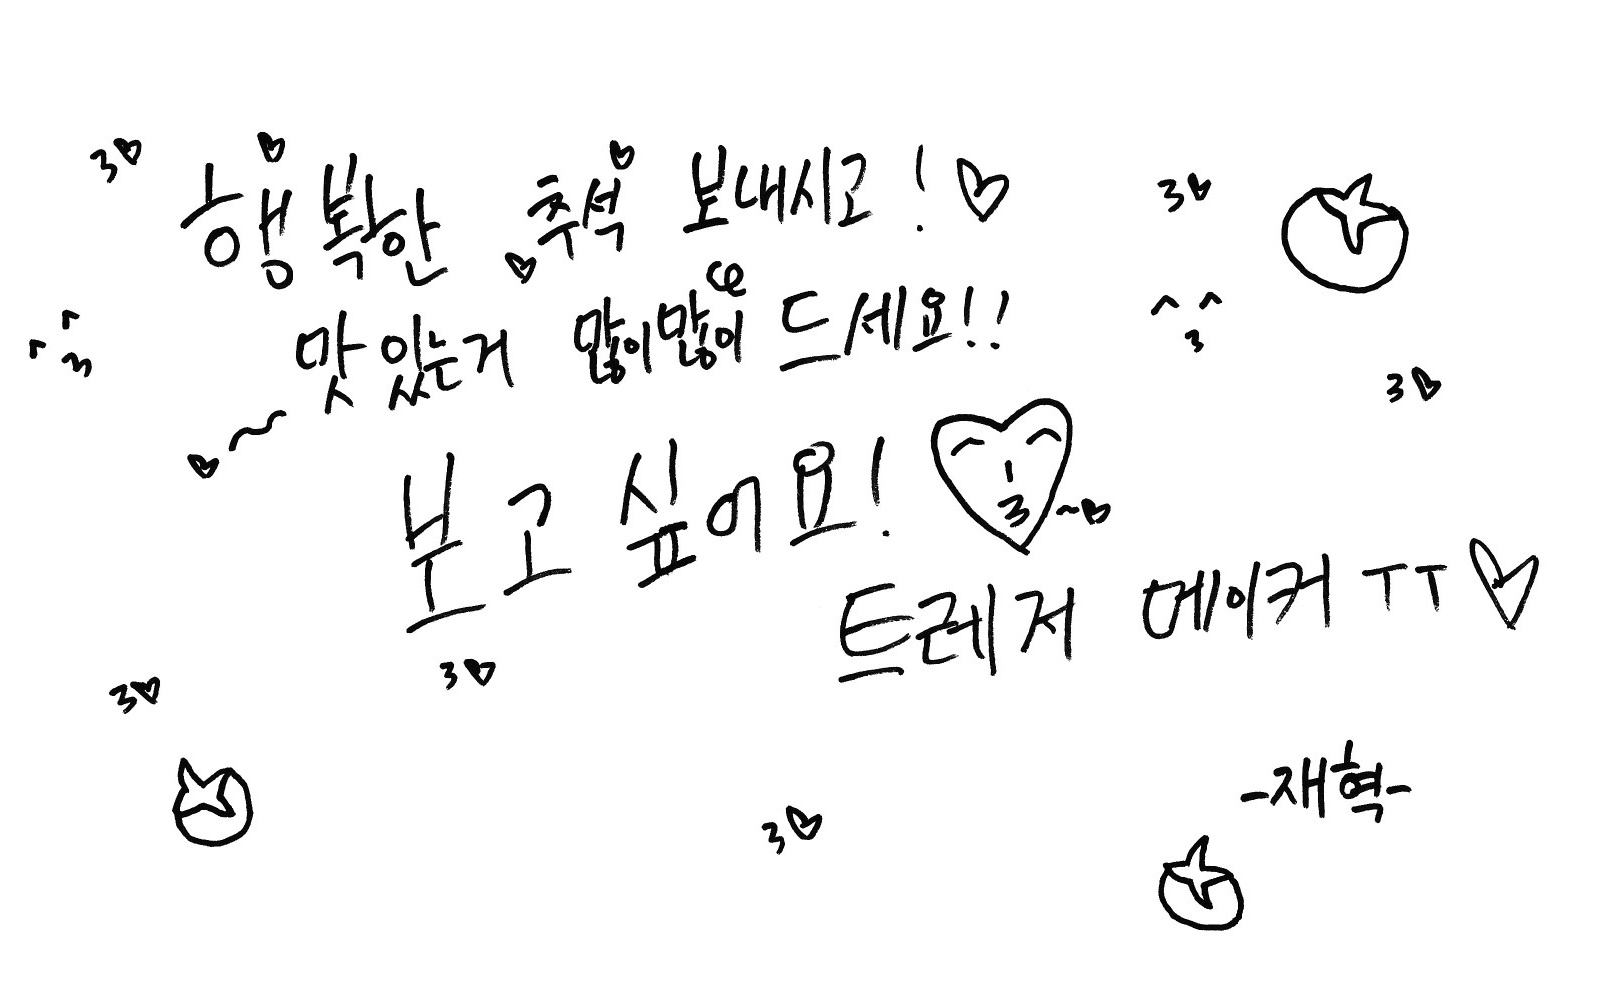 행복한 추석 보내시고!♡
맛있는거 많이많이 드세요!!
보고싶어요!
트레저 메이커 ㅜㅜ♡
-재혁-